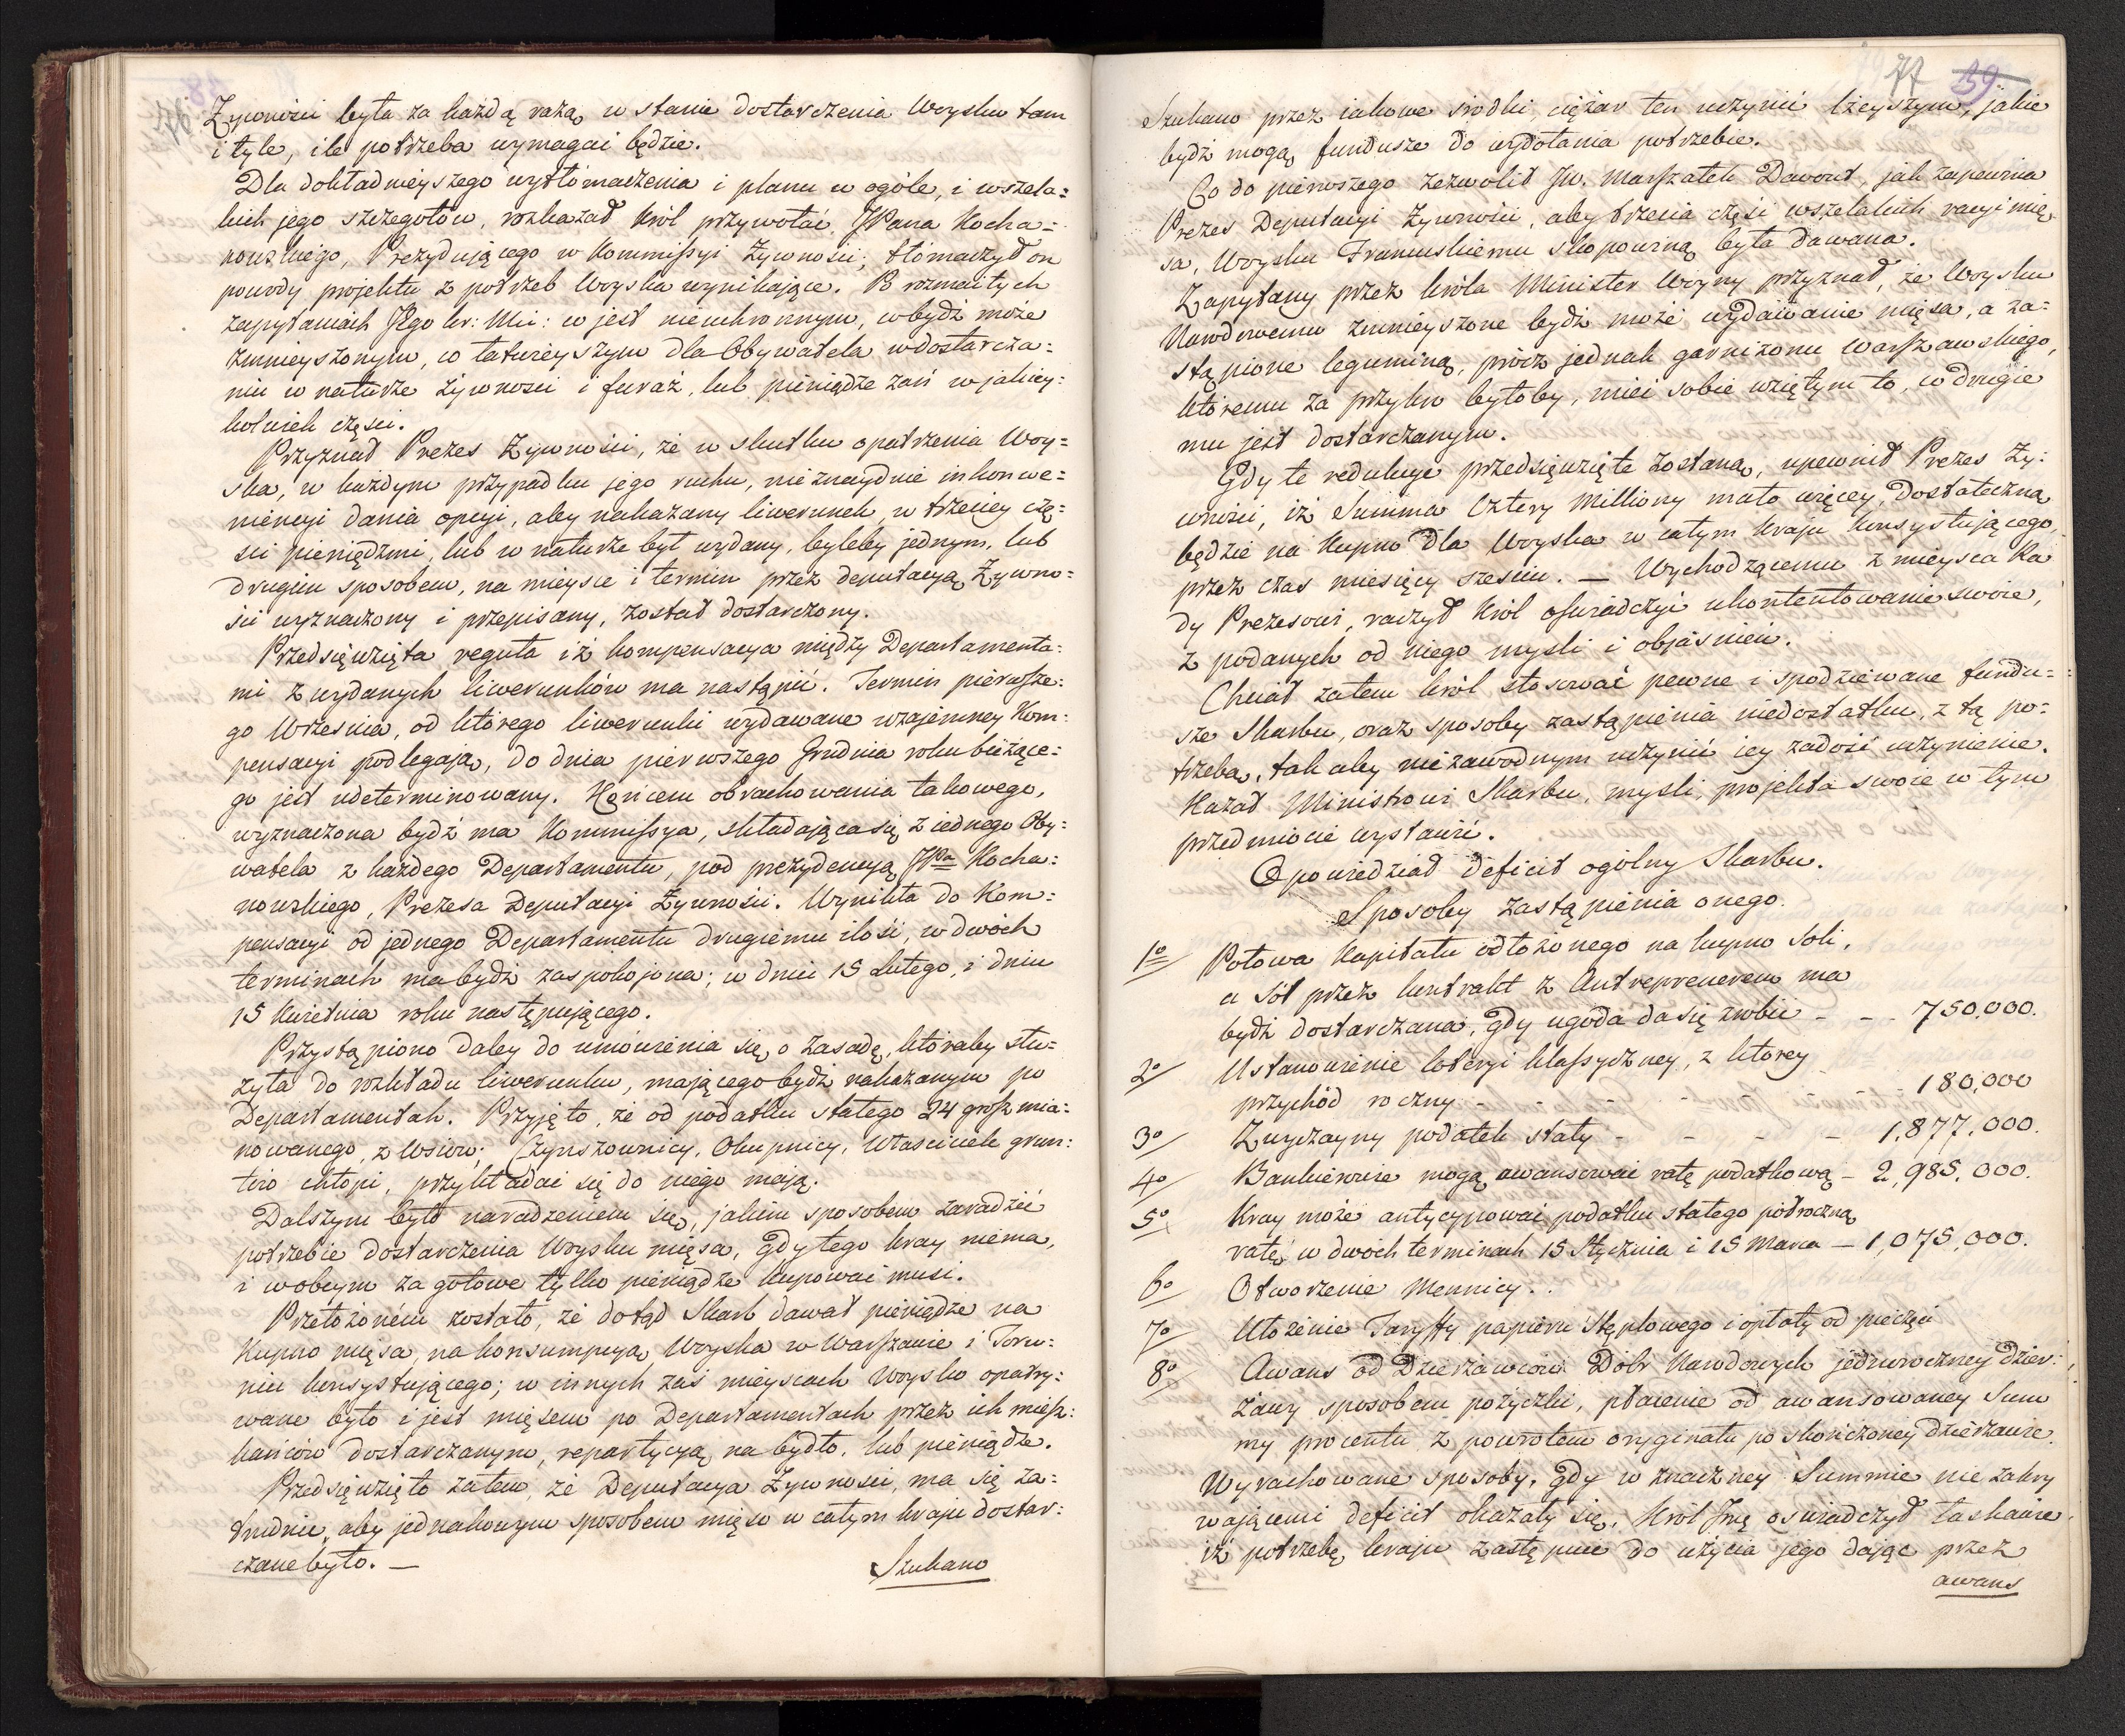 76
Żywności była za każdą rażą w stanie dostarczenia Woysku tam
i tyle, ile potrzeba wymagać będzie.
Dla dokładnieyszego wytłómaczenia i planu w ogóle, i wszela=
kich jego szczegółów, rozkazał Król przywołać, JPana Kocha=
nowskiego, Prezydującego w Kommissyi Żywności; tłómaczył on
powody projektu z potrzeb Woyska wynikające. P rozmaitych
zapytaniach JKgo kr: Mci: co jest nieuchronnym, co bydź może
zmnieyszonym, co łatwieyszym dla Obywatela w dostarcza=
niu w naturze żywności i furaż, lub pieniądze zaś w jakiey=
kolwiek części.
Przyznał Prezes Żywności, że w skutku opatrzenia Woy=
ska, w każdym przypadku jego ruchu, nieznayduie inkonwe=
niencyi dania opcyi, aby nakazany liwerunek, w trzeciey czę=
ści pieniędzmi, lub w naturze był wydany, byleby jednym, lub
drugim sposobem, na mieysce i termin przez deputacyą Żywno=
ści wyznaczony i przepisany, został dostarczony.
Przedsięwzięta reguła iż kompensacya między Departamenta=
mi z wydanych liwerunków ma nastąpić. Termin pierwsze=
go Września, od którego liwerunki wydawane wzajemney Kom=
pensacyi podlegają, do dnia pierwszego Grudnia roku bieżące=
go jest udeterminowany. Końcem obrachowania takowego,
wyznaczona bydź ma Kommissya, składająca się z iednego Oby=
watela z każdego Departamentu, pod prezydencyą JPa Kocha=
nowskiego, Prezesa Deputacyi Żywności. Wynikła do Kom=
pensacyi od jednego Departamentu drugiemu ilość, w dwóch
terminach ma bydź zaspokojona; w dniu 15 Lutego, i dniu
15 Kwietnia roku następującego.
Przystąpiono daley do umówienia się o zasadę, któraby słu=
żyła do rozkładu liwerunku, mającego bydź nakazanym po
Departamentah. Przyjęto, że od podatku stałego 24 grosz mia=
nowanego, z wsiów; Czynszownicy, Okupnicy, Właściciele grun=
tów chłopi, przykładać się do niego mają.
Dalszym było naradzeniem się, jakim sposobem zaradzić
potrzebie dostarczenia Woysku mięsa, gdy tego kray niema,
i w obcym za gotowe tylko pieniądze kupować musi.
Przełożoném zostało, że dotąd Skarb dawał pieniądze na
Kupno mięsa, na konsumpcyą Woyska w Warszawie i Toru=
niu konsystującego; w innych zaś mieyscach Woysko opatry=
wane było i jest mięsem po Departamentach przez ich miesz=
kańców dostarczanym, repartycyą na bydło, lub pieniądze.
Przedsięwzięto zatem, że Deputacya Żywności, ma się za=
trudnić, aby jednakowym sposobem mięso w całym kraju dostar=
czane było. —
Szukano
77 39
Szukano przez iakowe środki, ciężar ten uczynić lżeyszym, jakie
bydź mogą fundusze do wydołania potrzebie.
Co do pierwszego zezwolił JW. Marszałek Davout, jak zapewnia
Prezes Deputacyi Żywności, aby trzecia część wszelakich racyi mię
sa, Woysku Francuskiemu skopowiną była dawana.
Zapytany przez Króla Minister Woyny przyznał, że Woysku
Narodowemu zmnieyszone bydź może wydawanie mięsa, a za=
stąpione leguminą, prócz jednak garnizonu Warszawskiego,
któremu za przykro byłoby, mieć sobie wziętym to, co drugie
mu jest dostarczanym.
Gdy te redukcye przedsięwzięte zostaną, upewnił Prezes Ży=
wności, iż Summa Cztery Milliony mało więcey, dostateczną
będzie na Kupno dla Woyska w całym kraju konsystującego,
przez czas miesięcy sześciu. — Wychodzącemu z mieysca Ra
dy Prezesowi, raczył Król oświadczyć ukontentowanie swoie,
z podanych od niego myśli i objaśnień.
Chciał zatem Król stosować pewne i spodziewane fundu=
sze Skarbu, oraz sposoby zastąpienia niedostatku, z tą po=
trzebą, tak aby niezawodnym uczynić iey zadość uczynienie.
Kazał Ministrowi Skarbu, myśli, projekta swoie w tym
przedmiocie wystawić.
Opowiedział deficit ogólny Skarbu.
Sposoby zastąpienia onego.
1o Połowa Kapitału odłożonego na kupno Soli,
a sól przez kontrakt z Antreprenerem ma
bydź dostarczana, gdy ugoda da się zrobić - - - 750,000.
2o Ustanowienie loteryi klassyczney, z którey
przychód roczny - - - - - - - - 180,000
3o Zwyczayny podatek stały - - - - 1,877,000.
4o Bankierowie mogą awansować ratę podatkową - 2,985,000.
5o Kray może antycypować podatku stałego półroczną
ratę w dwóch terminach 15 Stycznia i 15 Marca — 1,075,000.
6o Otworzenie Mennicy..
7o Ułożenie Taryffy papieru Stęplowego i opłaty od pieczęci
8o Awans od Dzierżawców Dóbr Narodowych jednoroczney dzier=
żawy sposobem pożyczki, płacenie od awansowaney Sum
my procentu z powrotem oryginału po skończoney dzierżawie.
Wyrachowane sposoby, gdy w znaczney Summie nie zakry
wającemi deficit okazały się, Król Jmć oświadczył łaskawie,
iż potrzebę kraju zastępuie do użycia jego dając przez
awans